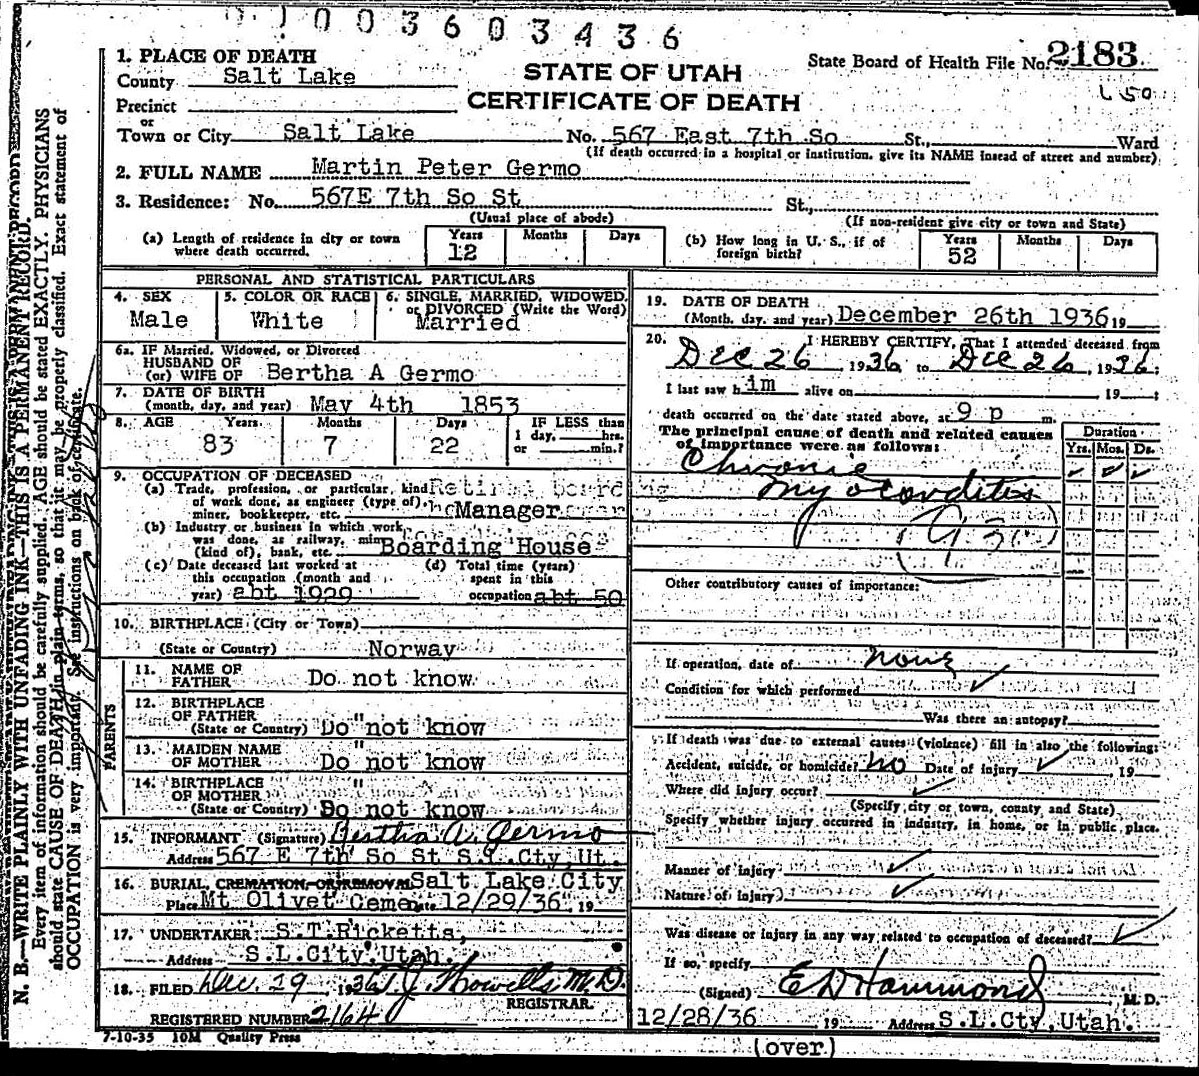 01003603436
1. PLACE OF DEATH
State Board of Health File No. 2183
County Salt Lake
STATE OF UTAH
CERTIFICATE OF DEATH
Precinct
or
Town or City Salt Lake No. 567 East 7th So St., Ward
(If death occurred in a hospital or institution, give its NAME instead of street and number)
2. FULL NAME Martin Peter Germo
3. Residence: No. 567E 7th So St St.,
(Usual place of abode) (If non-resident give city or town and State)
(a) Length of residence in city or town where death occurred. Years 12 Months Days
(b) How long in U. S., if of foreign birth? Years 52 Months Days
PERSONAL AND STATISTICAL PARTICULARS
4. SEX Male
5. COLOR OR RACE White
6. SINGLE, MARRIED, WIDOWED, or DIVORCED (Write the Word) Married
6a. IF Married, Widowed, or Divorced
HUSBAND OF
(or) WIFE OF Bertha A Germo
7. DATE OF BIRTH
(month, day, and year) May 4th 1853
8. AGE Years 83 Months 7 Days 22 IF LESS than 1 day, hrs. or min.?
9. OCCUPATION OF DECEASED
(a) Trade, profession, or particular kind of work done, as engineer (type of), miner, bookkeeper, etc. Retired boarding Manager
(b) Industry or business in which work was done, as railway, mine (kind of), bank, etc. Boarding House
(c) Date deceased last worked at this occupation (month and year) abt 1929
(d) Total time (years) spent in this occupation abt 50
10. BIRTHPLACE (City or Town)
(State or Country) Norway
PARENTS
11. NAME OF FATHER Do not know
12. BIRTHPLACE OF FATHER "
(State or Country) Do not know
13. MAIDEN NAME OF MOTHER " Do not know
14. BIRTHPLACE OF MOTHER "
(State or Country) Do not know
15. INFORMANT (Signature) Bertha A. Germo
Address 567 E 7th So St S.L.Cty,Ut.
16. BURIAL, CREMATION, OR REMOVAL Salt Lake City
Place Mt Olivet Ceme Date 12/29/36 19
17. UNDERTAKER S.T.Ricketts,
Address S.L.City.Utah.
18. FILED Dec. 29, 1936 T.J. Howells M.D.
REGISTRAR.
REGISTERED NUMBER 2164
7-10-35 10M Quality Press
19. DATE OF DEATH
(Month, day, and year) December 26th 1936 19
20. I HEREBY CERTIFY, That I attended deceased from
Dec 26, 1936, to Dec 26, 1936;
I last saw him alive on 19 ;
death occurred on the date stated above, at 9 p m.
The principal cause of death and related causes of importance were as follows:
Duration
Yrs. Mos. Ds.
Chronic
myocarditis
930
Other contributory causes of importance:
If operation, date of none
Condition for which performed
Was there an autopsy?
If death was due to external causes (violence) fill in also the following:
Accident, suicide, or homicide? no Date of injury , 19
Where did injury occur?
(Specify city or town, county and State)
Specify whether injury occurred in industry, in home, or in public place.
Manner of injury
Nature of injury
Was disease or injury in any way related to occupation of deceased?
If so, specify
(Signed) E D Hammond, M. D.
12/28/36 19 Address S.L.Cty,Utah.
(over)
N. B.—WRITE PLAINLY WITH UNFADING INK—THIS IS A PERMANENT RECORD.
Every item of information should be carefully supplied. AGE should be stated EXACTLY. PHYSICIANS
should state CAUSE OF DEATH in plain terms, so that it may be properly classified. Exact statement of
OCCUPATION is very important. See instructions on back of certificate.